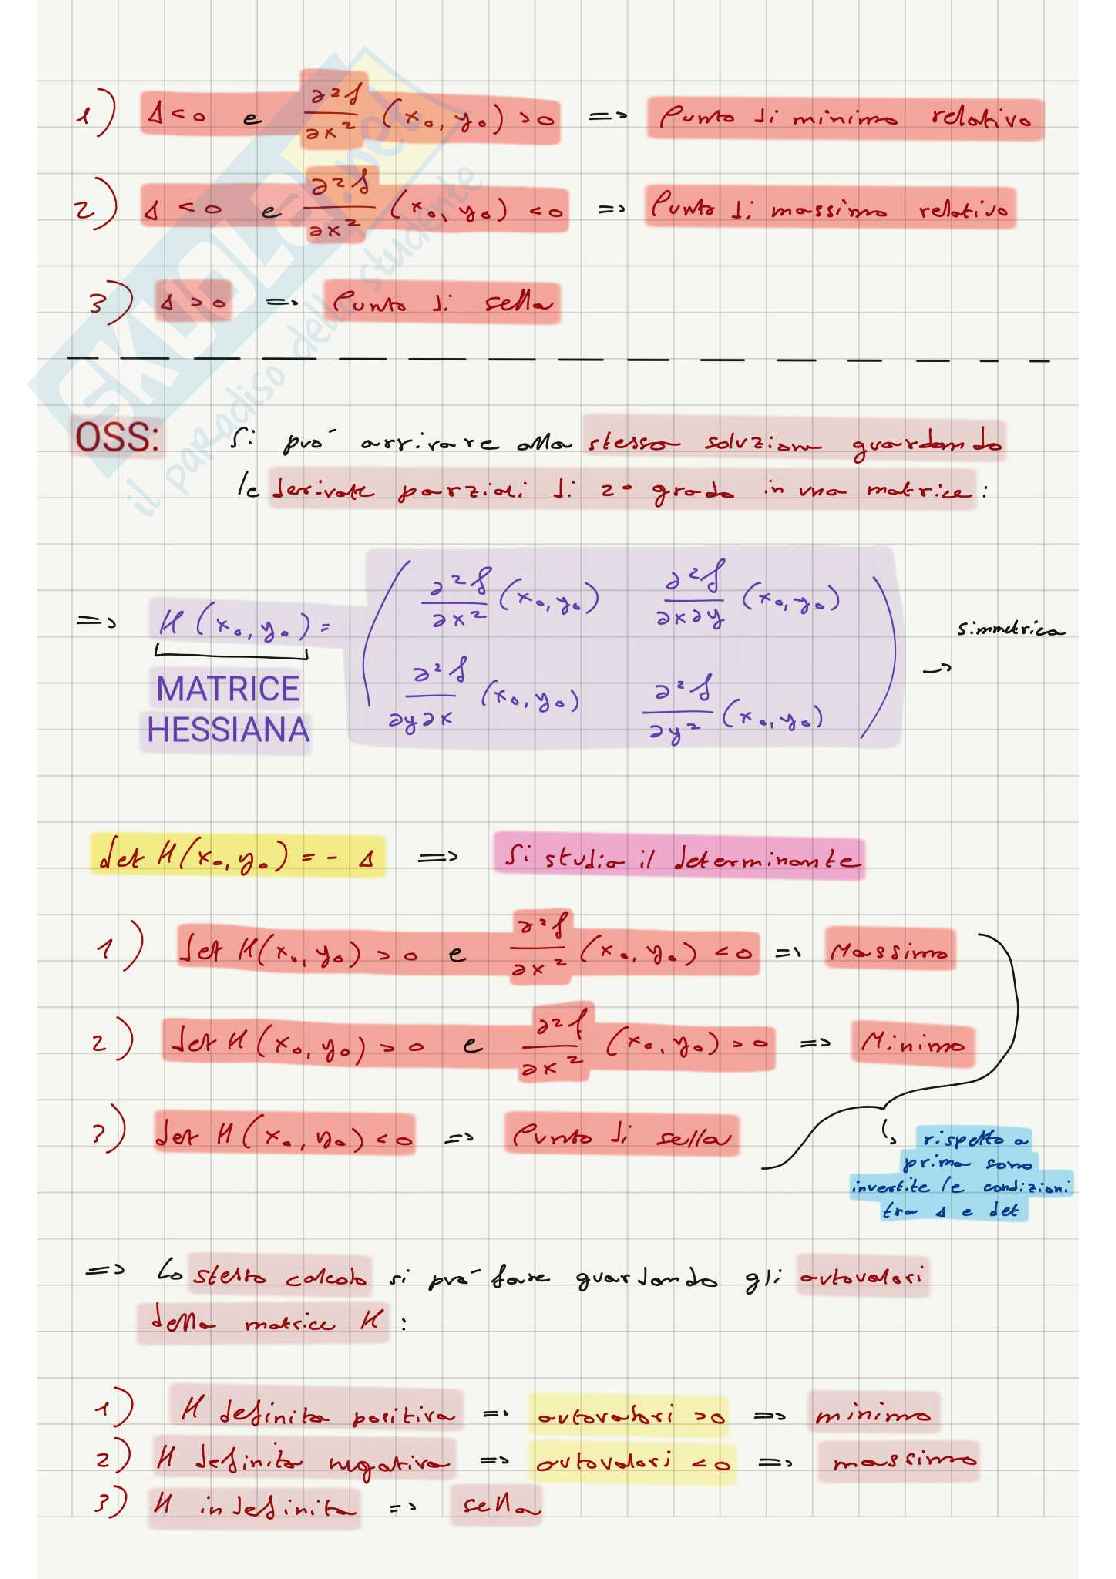 1) Δ<0 e ∂²f/∂x² (x₀, y₀) >0 => Punto di minimo relativo
2) Δ<0 e ∂²f/∂x² (x₀, y₀) <0 => Punto di massimo relativo
3) Δ>0 => Punto di sella
SKUOLA.net
il paradiso dello studente
OSS: Si può arrivare alla stessa soluzione guardando
le derivate parziali di 2° grado in una matrice:
=> H(x₀, y₀) = ( ∂²f/∂x² (x₀, y₀) ∂²f/∂x∂y (x₀, y₀)
∂²f/∂y∂x (x₀, y₀) ∂²f/∂y² (x₀, y₀) ) -> simmetrica
MATRICE
HESSIANA
det H(x₀, y₀) = - Δ => Si studia il determinante
1) det H(x₀, y₀) >0 e ∂²f/∂x² (x₀, y₀) <0 => Massimo
2) det H(x₀, y₀) >0 e ∂²f/∂x² (x₀, y₀) >0 => Minimo
3) det H(x₀, y₀) <0 => Punto di sella
rispetto a
prima sono
invertite le condizioni
tra Δ e det
=> Lo stesso calcolo si può fare guardando gli autovalori
della matrice H:
1) H definita positiva => autovalori >0 => minimo
2) H definita negativa => autovalori <0 => massimo
3) H indefinita => sella